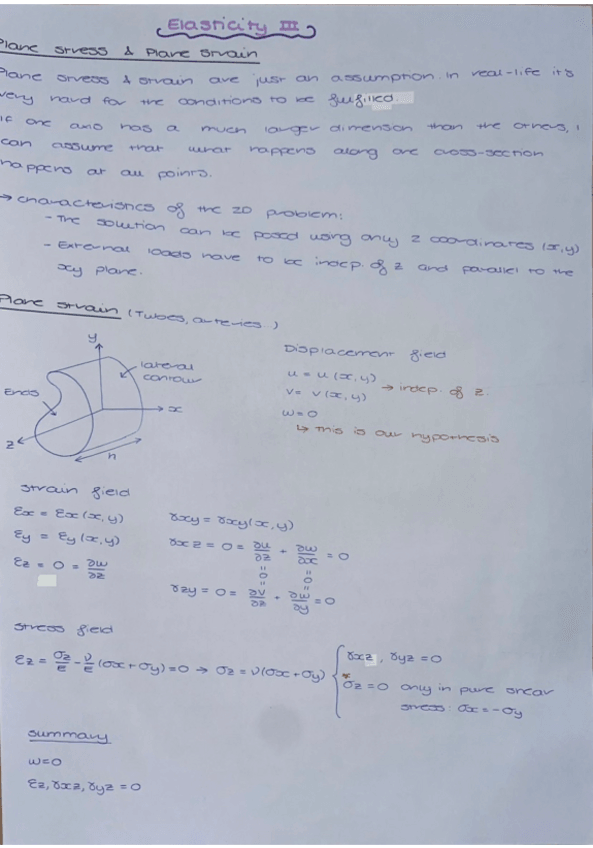 Elasticity III
Plane stress & Plane strain
Plane stress & strain are just an assumption. In real-life it's
very hard for the conditions to be fulfilled.
If one axis has a much larger dimension than the others, I
can assume that what happens along one cross-section
happens at all points.
→ Characteristics of the 2D problem:
- The solution can be posed using only 2 coordinates (x,y)
- External loads have to be indep. of z and parallel to the
xy plane.
Plane strain (Tubes, arteries...)
y
lateral
contour
Ends
x
z
h
Displacement field
u = u(x,y)
v = v(x,y) → indep. of z.
w=0
↳ This is our hypothesis
Strain field
εx = εx(x,y)
εy = εy(x,y)
εz = 0 = ∂w/∂z
γxy = γxy(x,y)
γxz = 0 = ∂u/∂z + ∂w/∂x = 0
=0 =0
γzy = 0 = ∂v/∂z + ∂w/∂y = 0
Stress field
εz = σz/E - ν/E (σx+σy) = 0 → σz = ν(σx+σy)
γxz, γyz = 0
*σz = 0 only in pure shear
stress: σx = -σy
Summary
w=0
εz, γxz, γyz = 0